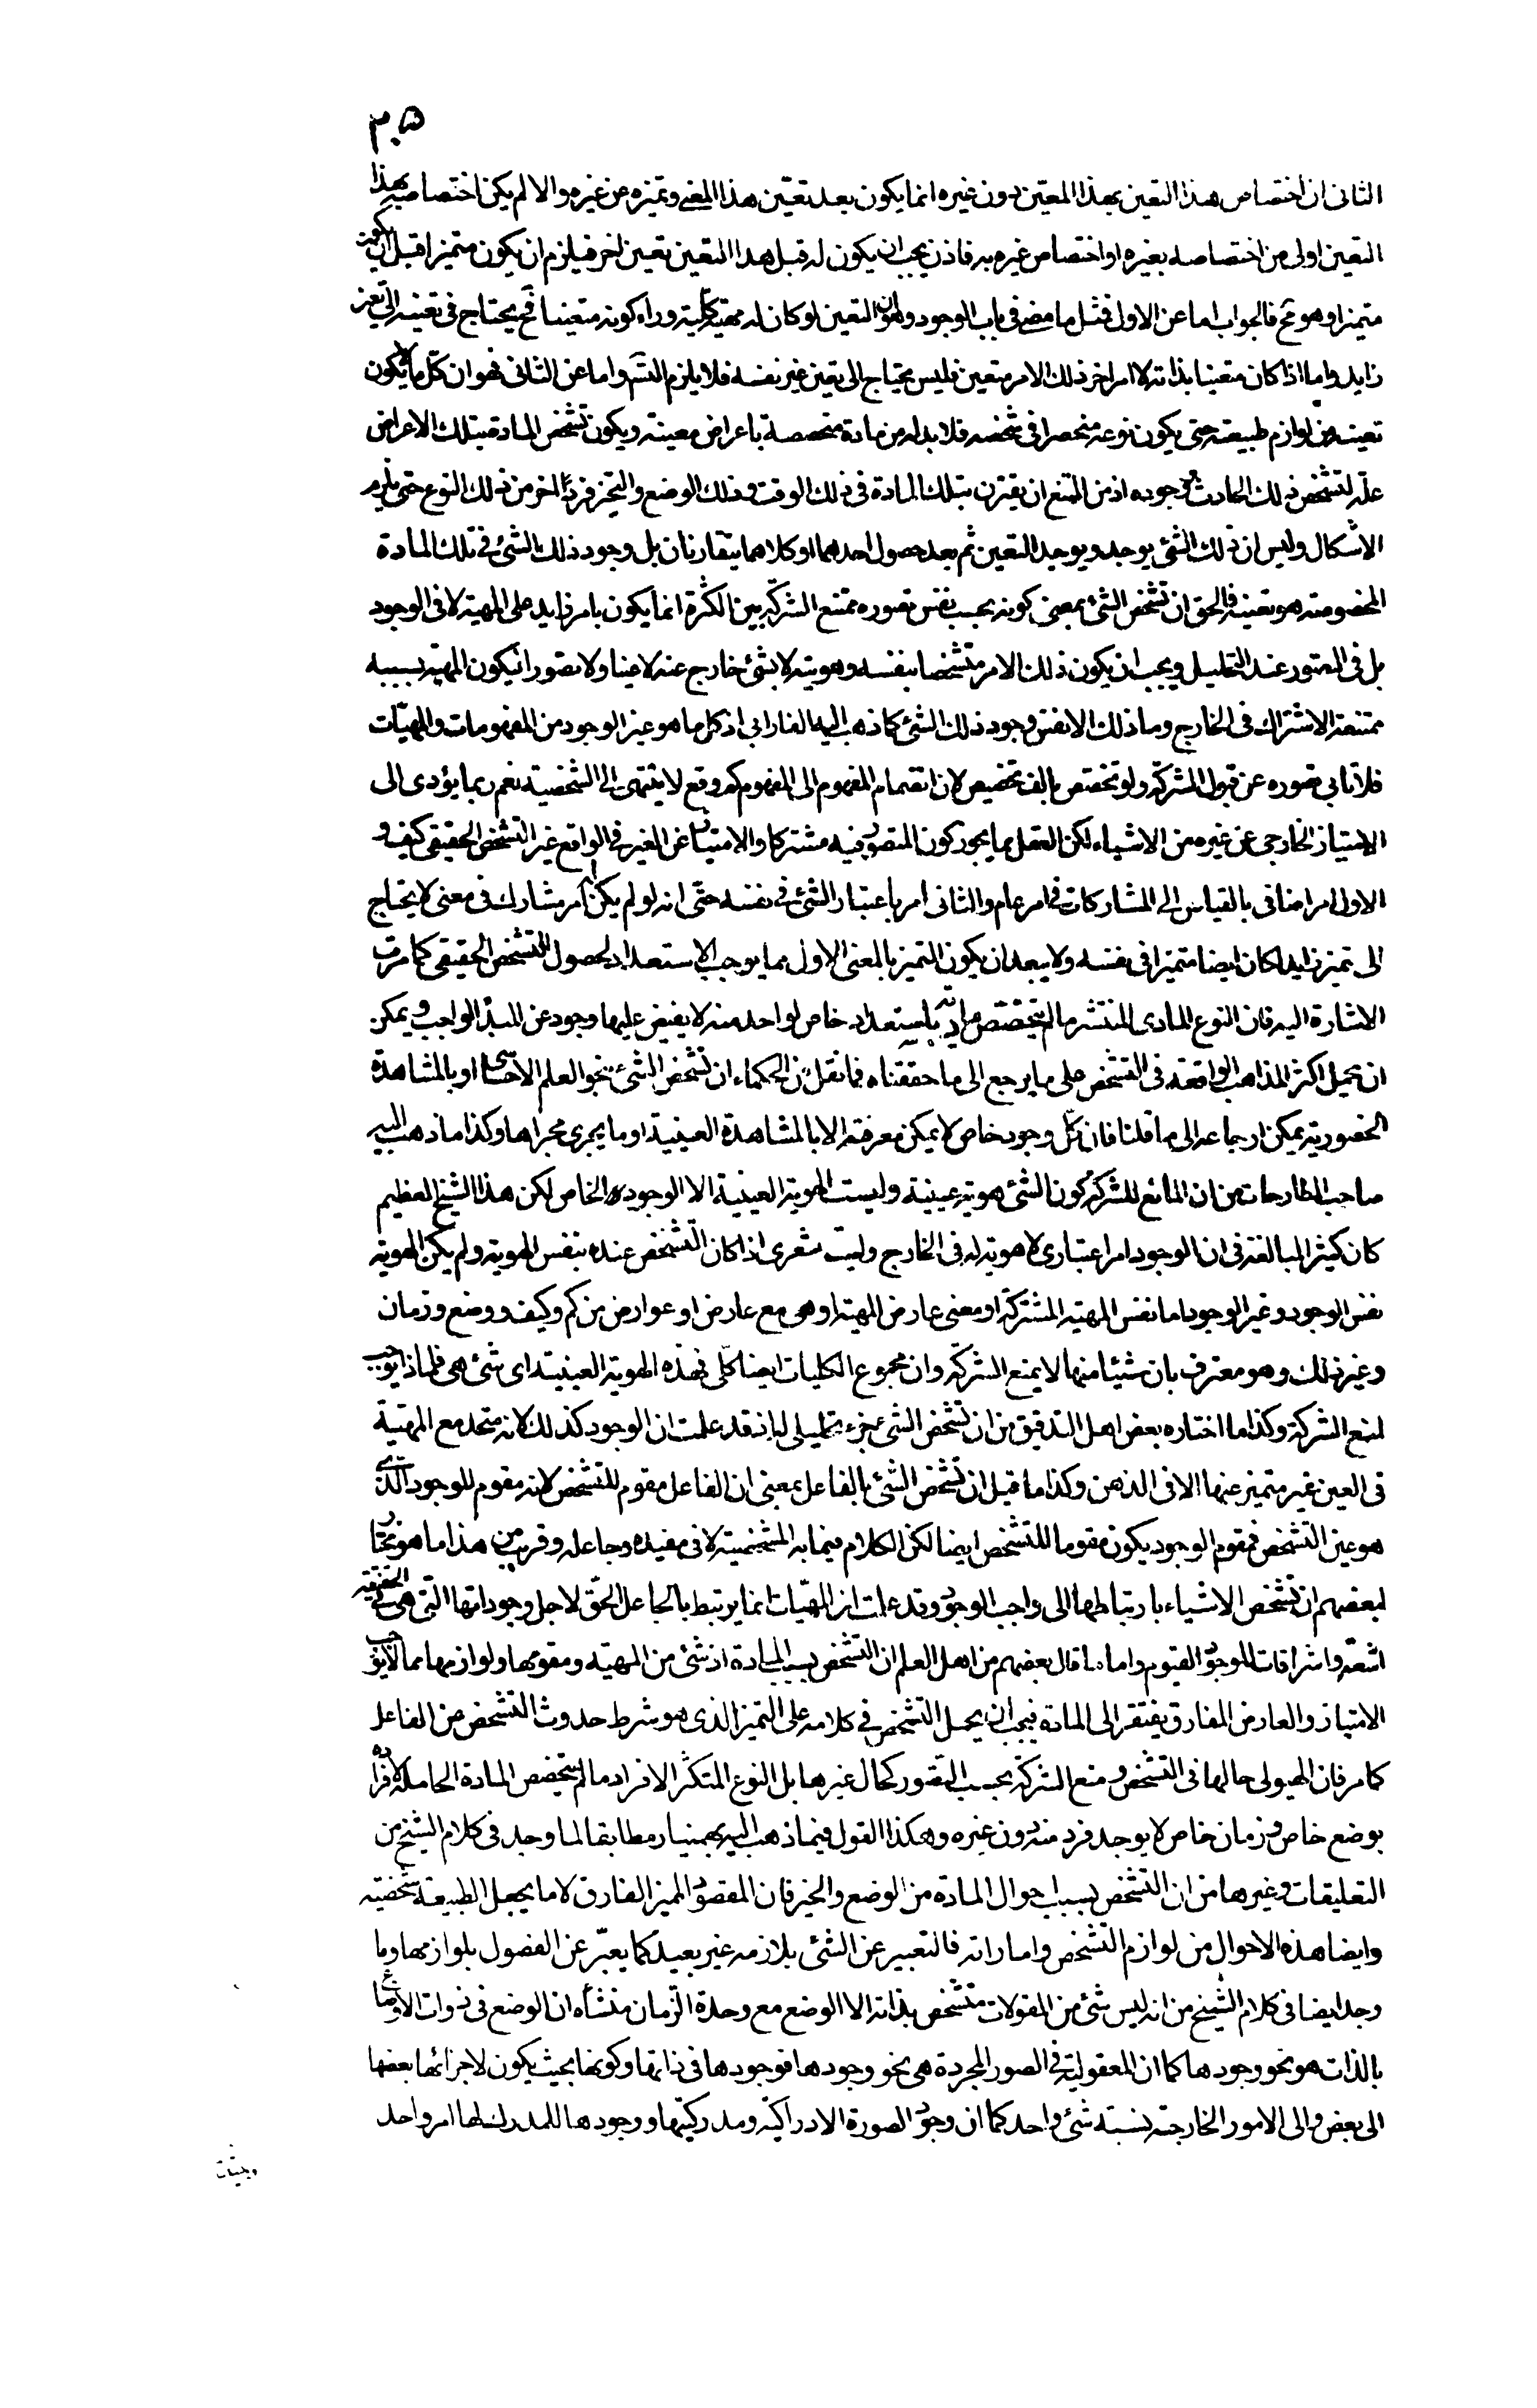 ٣٠٥
الثانى ان اختصاص هذا التعين بهذا المعيّن دون غيره انما يكون بعد تعيّن هذا المعنى وتميزه عن غيره والا لم يكن اختصاصه بهذا
التعين اولى من اختصاصه بغيره او اختصاص غيره به فاذن يجب ان يكون له قبل هذا التعين تعين اخر فيلزم ان يكون متميزا قبل ان يكون
متميزا وهو مح فالجواب اما عن الاول فمثل ما مضى فى باب الوجود وهو ان التعين لو كان له مهيّة كلّية وراء كونه متعينا فح يحتاج فى تعينه الى تعين
زايد واما اذا كان متعينا بذاته لا امرا اخر ذلك الامر متعين فليس يحتاج الى تعين غير نفسه فلا يلزم التسّ واما عن الثانى فهو ان كلّ ما لا يكون
تعينه من لوازم طبيعته حتى يكون نوعه منحصرا فى شخصه فلا بد له من مادة متخصصة باعراض معينة ويكون تشخص المادة بتلك الاعراض
علّة لتشخص ذلك الحادث ووجوده اذ من الممتنع ان يقترن بتلك المادة فى ذلك الوقت وذلك الوضع والتحيز فردا اخر من ذلك النوع حتى يلزم
الاشكال وليس ان ذلك الشئ يوجد ويوجد التعين ثم بعد حصول احدهما او كلاهما يتقارنان بل وجود ذلك الشئ فى تلك المادة
المخصوصة هو تعينه فالحق ان تشخص الشئ بمعنى كونه بحسب نفس تصوره ممتنع الشركة بين الكثرة انما يكون بامر زايد على المهية لا فى الوجود
بل فى التصور عند التحليل ويجب ان يكون ذلك الامر متشخصا بنفسه وهويته لا بشئ خارج عنه لا عينا ولا تصورا فيكون المهية بسببه
ممتنعة الاشتراك فى الخارج وما ذلك الا نفس وجود ذلك الشئ كما ذهب اليه الفارابى اذ كل ما هو غير الوجود من المفهومات والمهيّات
فلا تابى تصوره عن قبول الشركة ولو تخصّص بالف تخصيص لان انضمام المفهوم الى المفهوم كم وقع لا ينتهى الى الشخصية نعم ربما يؤدى الى
الامتياز الخارجى عن غيره من الاشياء لكن العقل ربما يجوز كون المتصور فيه مشتركا والامتياز عن الغير فى الواقع غير التشخص الحقيقى كيف و
الاول امر اضافى بالقياس الى المشاركات فى امر عام والثانى امر باعتبار الشئ فى نفسه حتّى انه لو لم يكن له مشارك فى معنى لا يحتاج
الى تميز زايد كان ايضا متميزا فى نفسه ولا يبعد ان يكون التميز بالمعنى الاول مما يوجب الاستعداد لحصول التشخص الحقيقى كما مرت
الاشارة اليه فان النوع المادى المنتشر ما لم يتخصّص مادّته باستعداد خاص لواحد منه لا يفيض عليها وجود عن المبدأ الواجب ويمكن
ان يحمل اكثر المذاهب الواقعة فى التشخص على ما يرجع الى ما حققناه فما نقل من الحكماء ان تشخص الشئ بنحو العلم الاحساسى او بالمشاهدة
الحضورية يمكن ارجاعه الى ما قلنا فان كلّ وجود خاص لا يمكن معرفته الا بالمشاهدة العينية او ما يجرى مجراها وكذا ما ذهب اليه
صاحب المطارحات من ان المانع للشركة كون الشئ هوية عينية وليست الهوية العينية الا الوجود الخاص لكن هذا الشيخ العظيم
كان كثير المبالغة فى ان الوجود امر اعتبارى لا هوية له فى الخارج وليت شعرى اذا كان التشخص عنده بنفس الهوية ولم يكن الهوية
نفس الوجود وغير الوجود اما نفس المهية المشتركة او معنى عارض المهية او هى مع عارض او عوارض من كم وكيف ووضع وزمان
وغير ذلك وهو معترف بان شيئا منها لا يمنع الشركة وان مجموع الكليات ايضا كلّى فهذه الهوية العينية اى شئ هى فلماذا يوجب
لمنع الشركة وكذا ما اختاره بعض اهل التدقيق من ان تشخص الشئ بجزء تحليلى له اذ قد علمت ان الوجود كذلك لانه متحد مع المهيّة
فى العين غير متميز عنها الا فى الذهن وكذا ما قيل ان تشخص الشئ بالفاعل بمعنى ان الفاعل مقوم للتشخص لانه مقوم للوجود الذى
هو عين التشخص فمقوم الوجود يكون مقوما للتشخص ايضا لكن الكلام فيما به المتشخصية لا فى مفيده وجاعله وقريب من هذا ما هو مختار
لبعضهم ان تشخص الاشياء بارتباطها الى واجب الوجود وقد علمت ان المهيّات انما يرتبط بالجاعل الحق لاجل وجوداتها التى هى فى الحقيقة
اشعّة واشراقات للوجود القيوم واما ما قال بعضهم من اهل العلم ان التشخص بسبب المادة اذ شئ من المهيّة ومقومها ولوازمها مما لا يوجب
الامتياز والعارض المفارق يفتقر الى المادة فيجب ان يحمل التشخص فى كلامه على التميز الذى هو شرط حدوث التشخص من الفاعل
كما مر فان الهيولى حالها فى التشخص ومنع الشركة بحسب التصور كحال غيرها بل النوع المتكثر الافراد ما لم يتخصص المادة الحاملة لافراده
بوضع خاص وزمان خاص لا يوجد فرد منه دون غيره وهكذا القول فيما ذهب اليه بهمنيار مطابقا لما وجد فى كلام الشيخ من
التعليقات وغيرها من ان التشخص بسبب احوال المادة من الوضع والحيز فان المقصود المميز الفارق لا ما يجعل الطبيعة شخصية
وايضا هذه الاحوال من لوازم التشخص واماراته فالتعبير عن الشئ بلازمه غير بعيد كما يعبّر عن الفصول بلوازمها وما
وجد ايضا فى كلام الشيخ من انه ليس شئ من المقولات متشخص بذاته الا الوضع مع وحدة الزمان منشأه ان الوضع فى ذوات الاوضاع
بالذات هو نحو وجودها كما ان المعقولية فى الصور المجردة هى نحو وجودها فوجودها فى ذاتها وكونها بحيث يكون لاجزائها بعضها
الى بعض والى الامور الخارجة نسبة شئ واحد كما ان وجود الصورة الادراكية ومدركيتها ووجودها للمدرك لها امر واحد